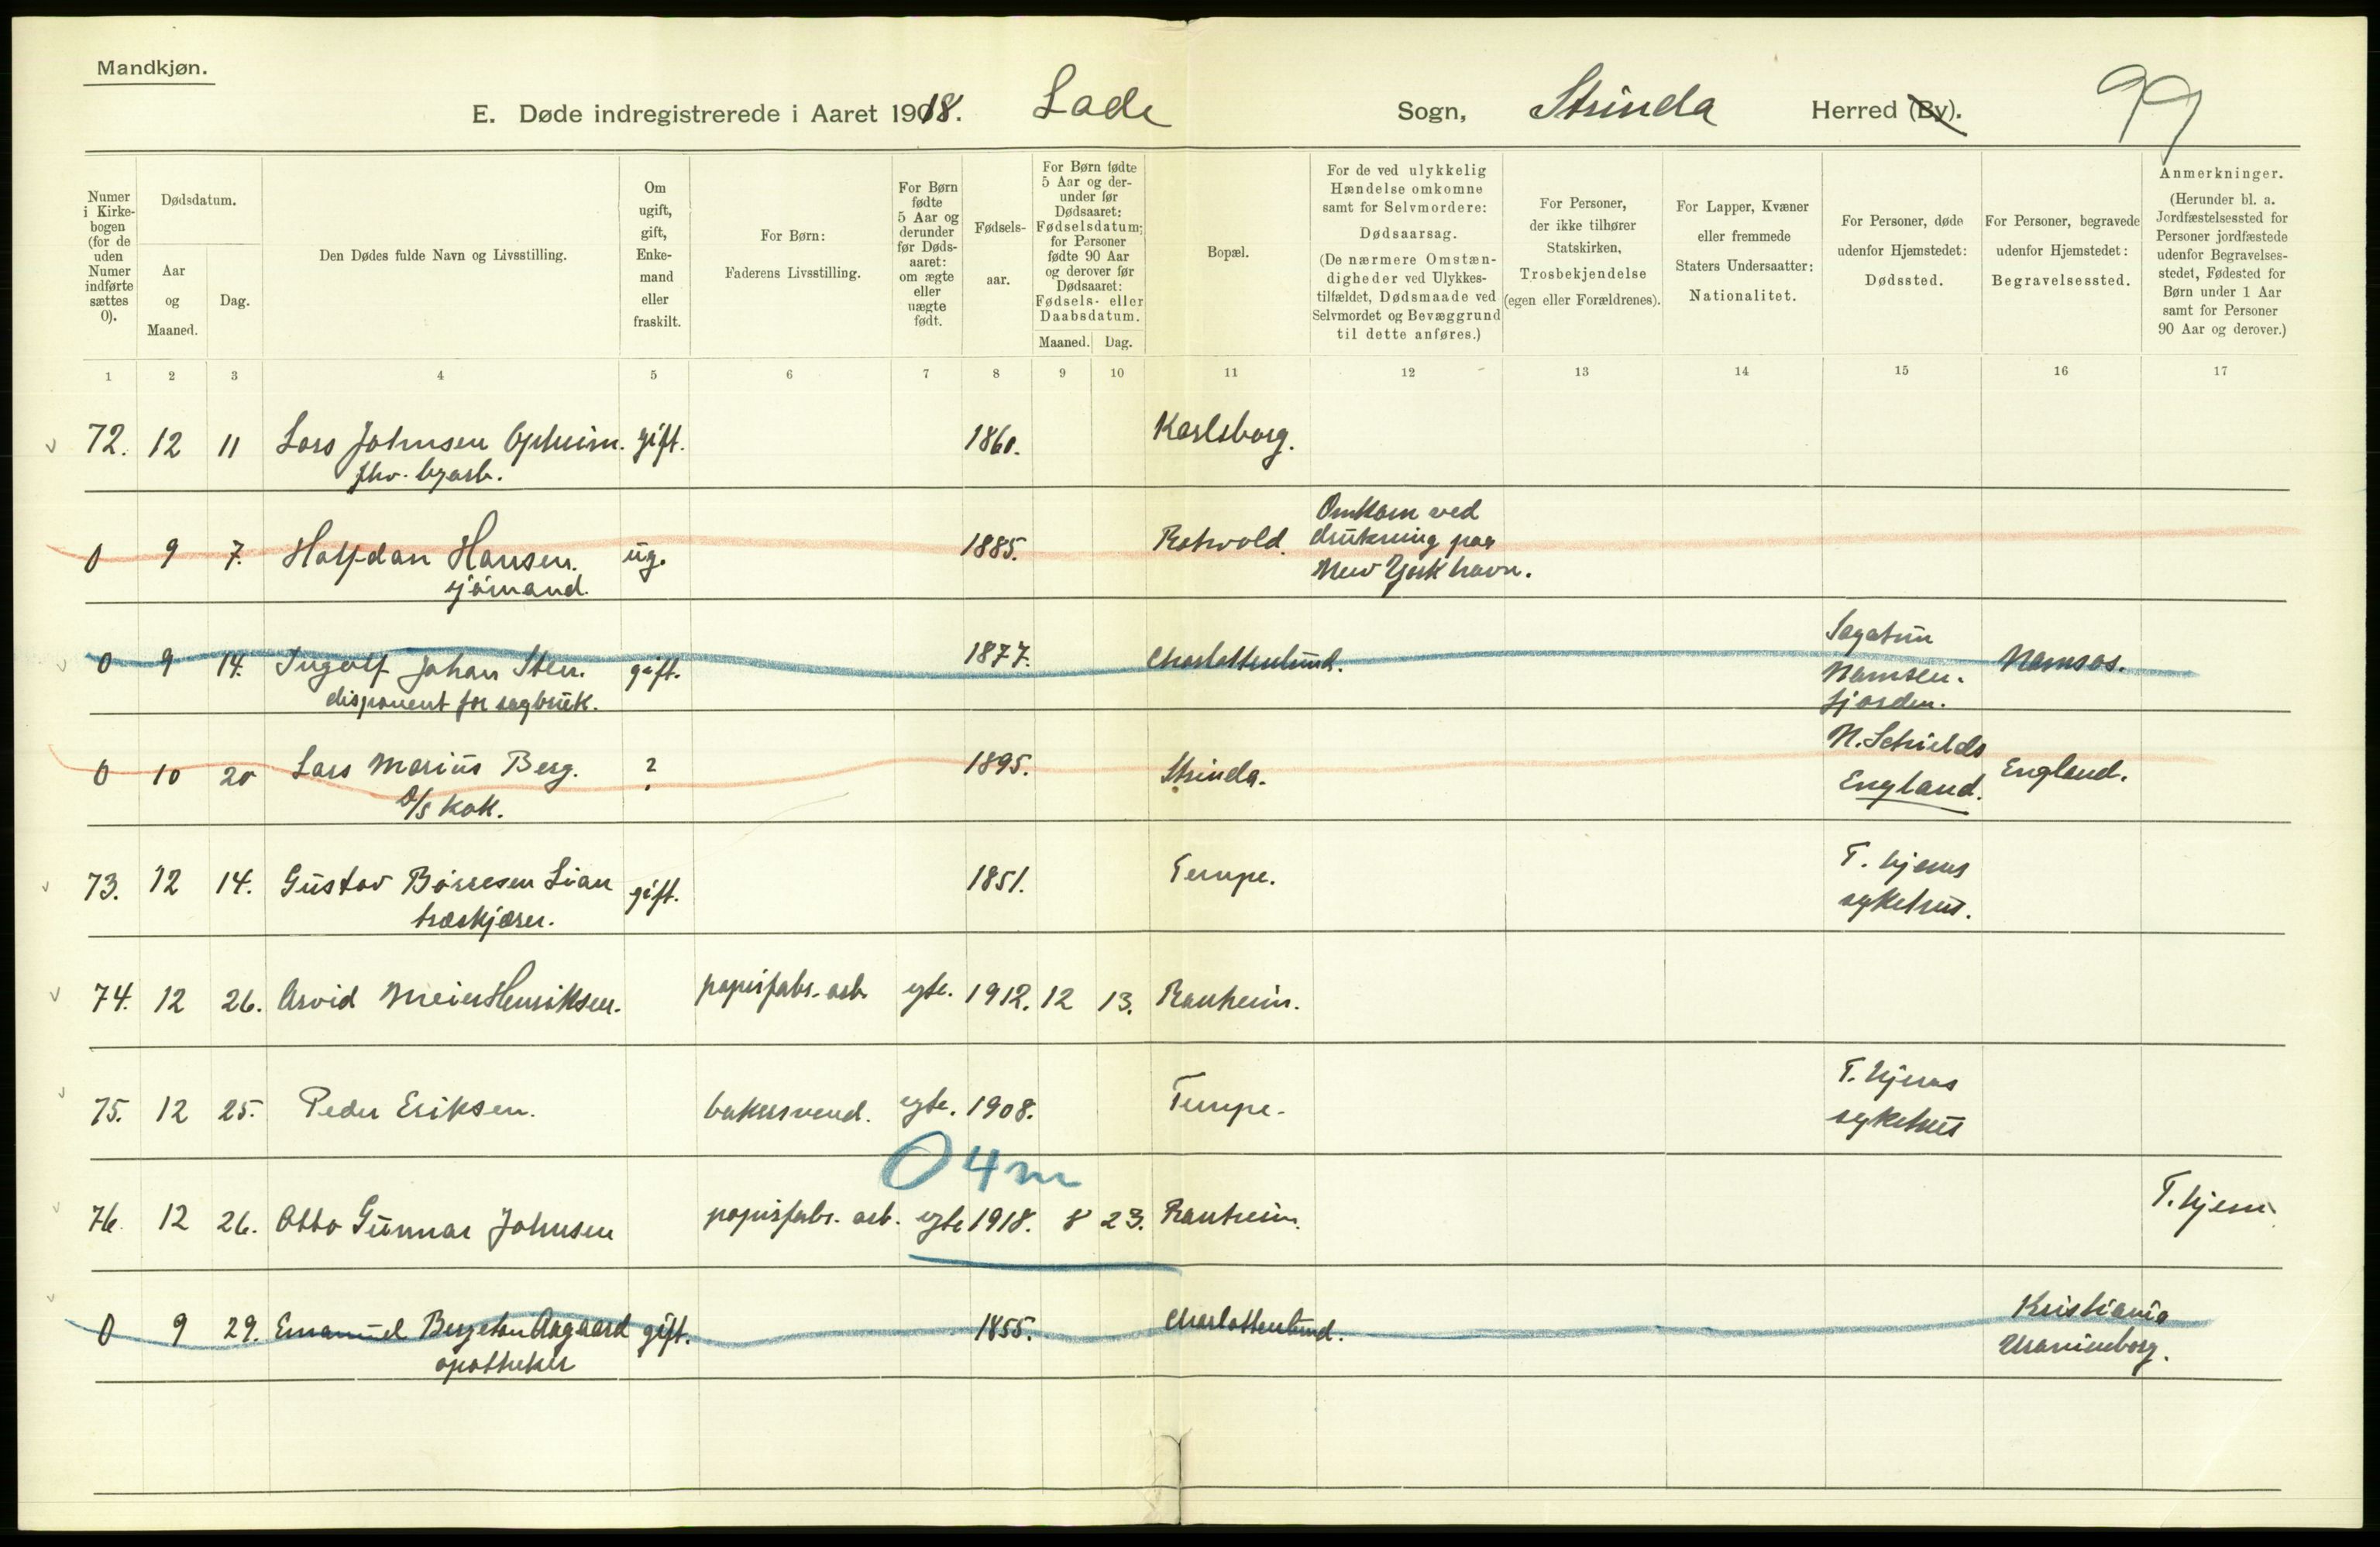 Mandkjøn.
E. Døde indregistrerede i Aaret 1918. Lade Sogn, Strinda Herred (By). 99
Numer i Kirkebogen (for de uden Numer indførte sættes 0).
Dødsdatum.
Aar og Maaned.
Dag.
Den Dødes fulde Navn og Livsstilling.
Om ugift, gift, Enkemand eller fraskilt.
For Børn: Faderens Livsstilling.
For Børn fødte 5 Aar og derunder før Dødsaaret: om ægte eller uægte født.
Fødselsaar.
For Børn fødte 5 Aar og derunder før Dødsaaret: Fødselsdatum; for Personer fødte 90 Aar og derover før Dødsaaret: Fødsels- eller Daabsdatum.
Maaned. Dag.
Bopæl.
For de ved ulykkelig Hændelse omkomne samt for Selvmordere: Dødsaarsag. (De nærmere Omstændigheder ved Ulykkestilfældet, Dødsmaade ved Selvmordet og Bevæggrund til dette anføres.)
For Personer, der ikke tilhører Statskirken, Trosbekjendelse (egen eller Forældrenes).
For Lapper, Kvæner eller fremmede Staters Undersaatter: Nationalitet.
For Personer, døde udenfor Hjemstedet: Dødssted.
For Personer, begravede udenfor Hjemstedet: Begravelsessted.
Anmerkninger. (Herunder bl. a. Jordfæstelsessted for Personer jordfæstede udenfor Begravelsesstedet, Fødested for Børn under 1 Aar samt for Personer 90 Aar og derover.)
1 2 3 4 5 6 7 8 9 10 11 12 13 14 15 16 17
72. 12 11 Lars Johnsen Opheim. gift. 1860. Karlsborg.
fhv. byarb.
0 9 7. Halfdan Hansen. ug. 1885. Rotvold. Omkom ved drukning paa New York havn.
sjømand.
0 9 14. Ingolf Johan Sten. gift. 1877. Charlottenlund. Sagatun Namsenfjorden. Namsos.
disponent for sagbruk.
0 10 20 Lars Marius Berg. ? 1895. Strinda. N. Schields England. England.
D/S kok.
73. 12 14. Gustav Børresen Lian gift. 1851. Tempe. T. hjems sykehus.
træskjærer.
74. 12 26. Arvid Meier Henriksen. papirfabr. arb. egte. 1912. 12 13. Ranheim.
75. 12 25. Peder Eriksen. bakersvend. egte. 1908. Tempe. T. hjems sykehus
0 4 m
76. 12 26. Otto Gunnar Johnsen papirfabr. arb. egte 1918. 8 23. Ranheim. T. hjem.
0 9 29. Emanuel Bergeton Aagaard gift. 1855. Charlottenlund. Kristiania Uranienborg.
apotheker